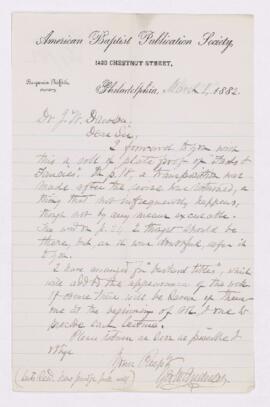 American Baptist Publication Society,
1420 CHESTNUT STREET,
Benjamin Griffith,
Philadelphia, March 1, 1882
Dr. J. W. Dawson
Dear Sir,
I forward to you now
this a roll of plate proof of "Facts &
Fancies". On p. 18, a transposition was
made after the was returned, a
thing that not infrequently happens,
though not by any means excusable.
The word on p. 24, 2 should be
there, but as it was doubtful, refer it
to you.
I have arranged for "bastard titles", which
will add to the appearance of the work.
Of course there will be seven of them
one at the beginning of all & one to
precede each lecture.
Please return as soon as possible &
oblige
Yours Resp'y